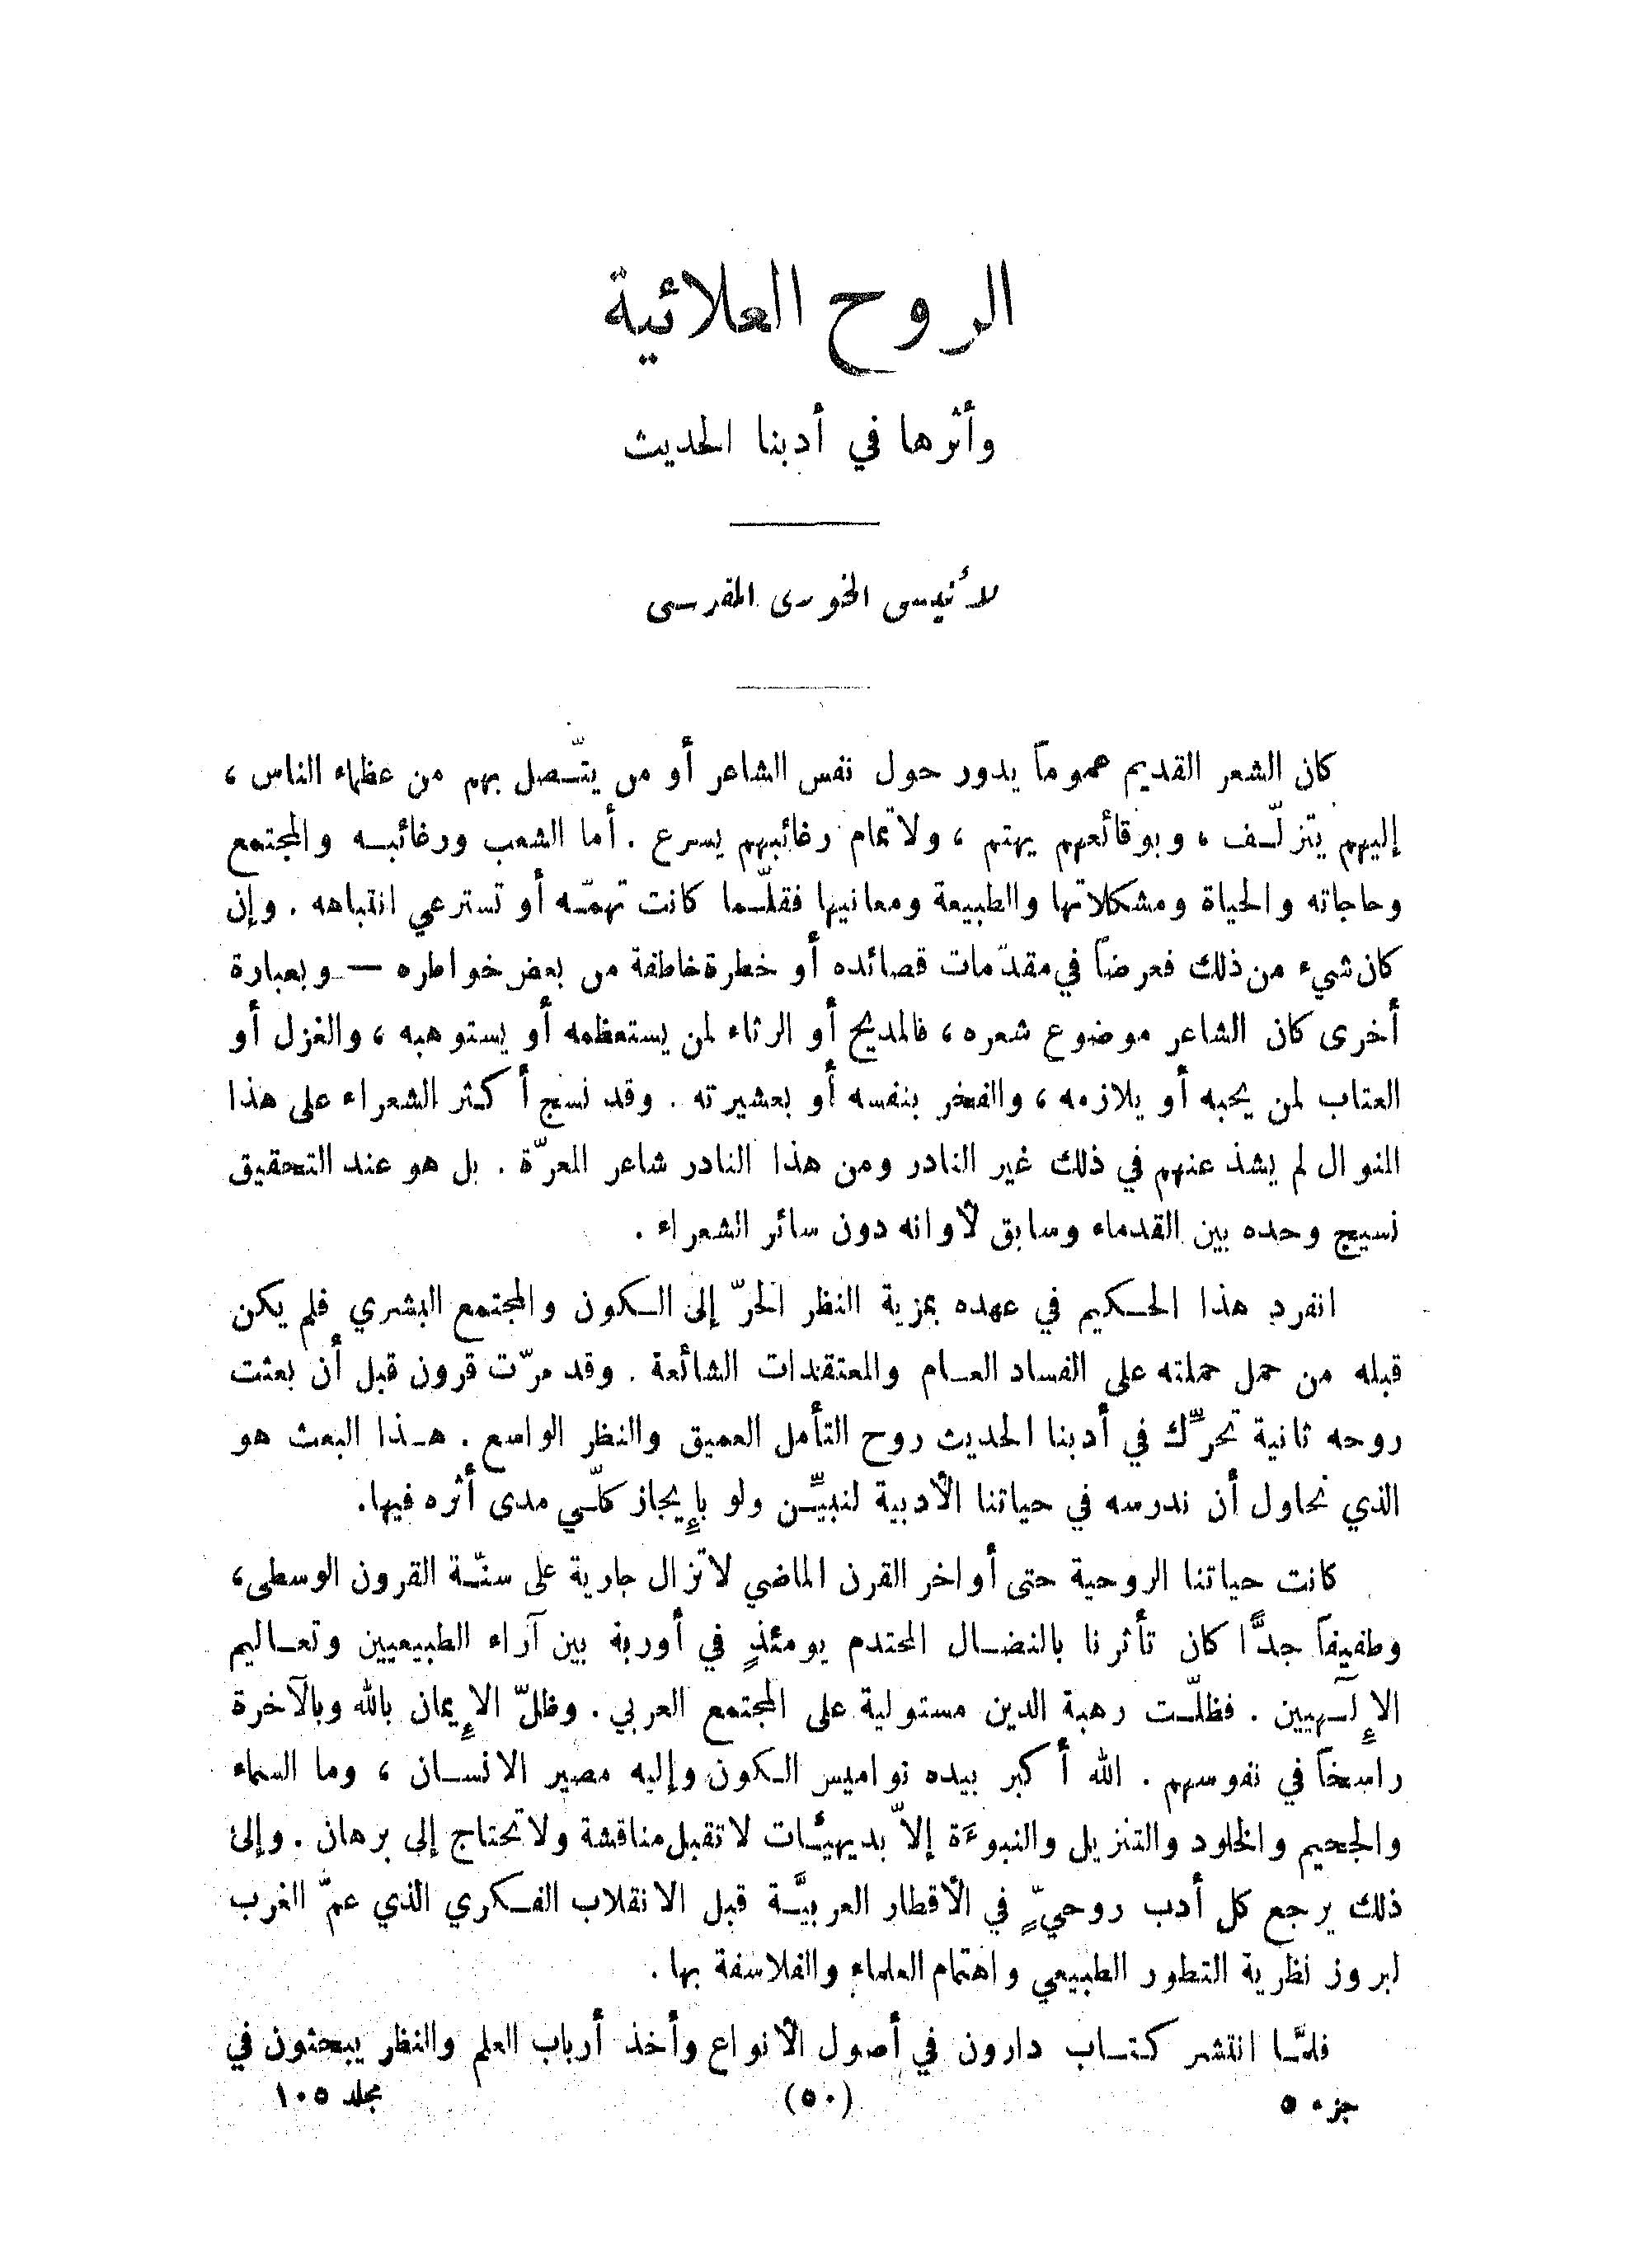 الروح العلائية
وأثرها في أدبنا الحديث
لأنيس الخوري المقرسي
كان الشعر القديم عموماً يدور حول نفس الشاعر أو من يتّصل بهم من عظماء الناس ،
إليهم يتزلّف ، وبوقائعهم يهتم ، ولاتمام رغائبهم يسرع . أما الشعب ورغائبه والمجتمع
وحاجاته والحياة ومشكلاتها والطبيعة ومعانيها فقلّما كانت تهمّه أو تسترعي انتباهه . وإن
كان شيء من ذلك فعرضاً في مقدّمات قصائده أو خطرة خاطفة من بعض خواطره — وبعبارة
أخرى كان الشاعر موضوع شعره ، فالمديح أو الرثاء لمن يستعظمه أو يستوهبه ، والغزل أو
العتاب لمن يحبه أو يلازمه ، والفخر بنفسه أو بعشيرته . وقد نسج أكثر الشعراء على هذا
المنوال لم يشذ عنهم في ذلك غير النادر ومن هذا النادر شاعر المعرّة . بل هو عند التحقيق
نسيج وحده بين القدماء وسابق لأوانه دون سائر الشعراء .
انفرد هذا الحكيم في عهده بمزية النظر الحرّ إلى الكون والمجتمع البشري فلم يكن
قبله من حمل حملته على الفساد العام والمعتقدات الشائعة . وقد مرّت قرون قبل أن بعثت
روحه ثانية تحرّك في أدبنا الحديث روح التأمل العميق والنظر الواسع . هذا البعث هو
الذي نحاول أن ندرسه في حياتنا الأدبية لنبيّن ولو بإيجاز كلّي مدى أثره فيها.
كانت حياتنا الروحية حتى أواخر القرن الماضي لاتزال جارية على سنّة القرون الوسطى،
وطفيفاً جدًّا كان تأثرنا بالنضال المحتدم يومئذٍ في أوربة بين آراء الطبيعيين وتعاليم
الإلٓهيين . فظلّت رهبة الدين مستولية على المجتمع العربي . وظلّ الإيمان بالله وبالآخرة
راسخاً في نفوسهم . الله أكبر بيده نواميس الكون وإليه مصير الانسان ، وما السماء
والجحيم والخلود والتنزيل والنبوءَة إلاّ بديهيّات لاتقبل مناقشة ولاتحتاج إلى برهان . وإلى
ذلك يرجع كل أدب روحيٍّ في الأقطار العربيَّة قبل الانقلاب الفكري الذي عمّ الغرب
لبروز نظرية التطور الطبيعي واهتمام العلماء والفلاسفة بها .
فلمَّا انتشر كتاب دارون في أصول الأنواع وأخذ أرباب العلم والنظر يبحثون في
جزء ٥ (٥٠) مجلد ١٠٥